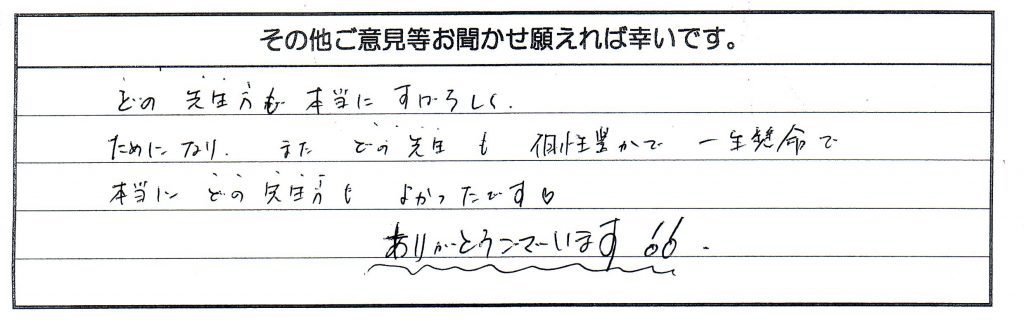 その他ご意見等お聞かせ願えれば幸いです。
どの先生方も本当にすばらしく.
ためになり. また どの先生も 個性豊かで 一生懸命で
本当に どの先生方も よかったです♡
ありがとうございます 66.